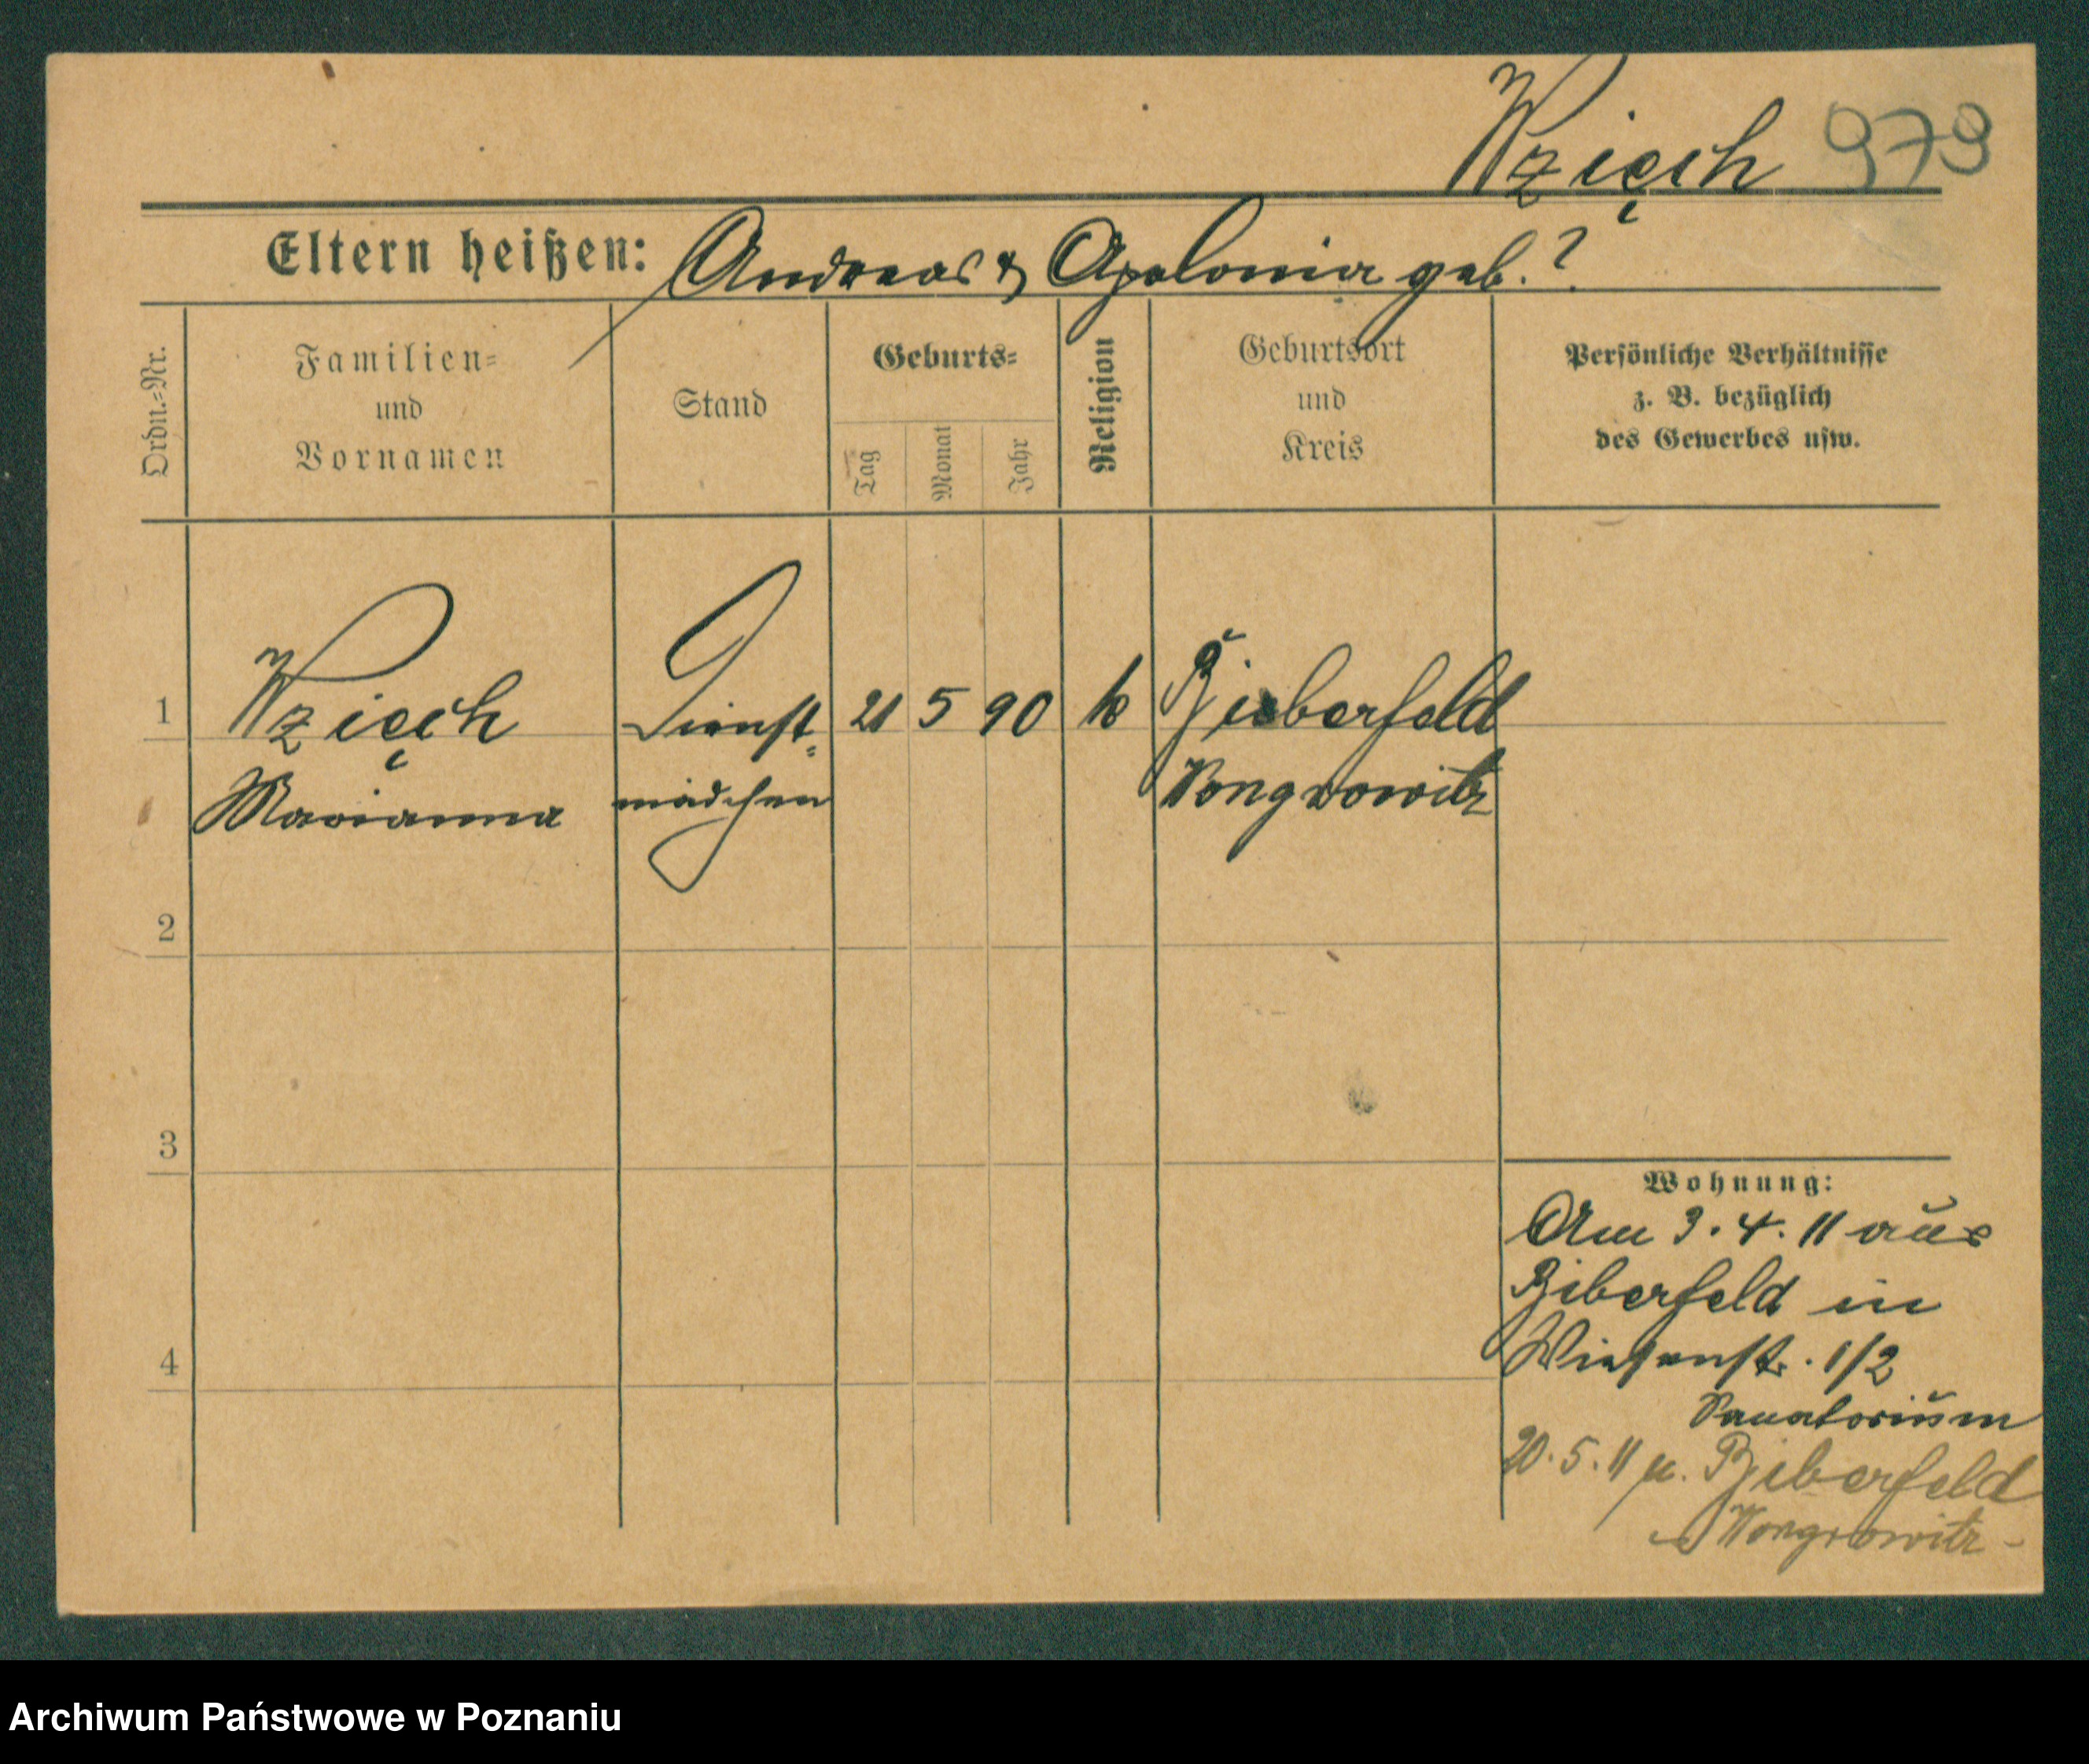 Wzięch 979
Eltern heißen: Andreas & Apolonia geb. ?
Ordn.-Nr.
Familien-
und
Vornamen
Stand
Geburts-
Tag
Monat
Jahr
Religion
Geburtsort
und
Kreis
Persönliche Verhältnisse
z. B. bezüglich
des Gewerbes usw.
1 Wzięch Dienst- 21 5 90 k Biberfeld
Marianna mädchen Wongrowitz
2
3
4
Wohnung:
Am 3. 4. 11 aus
Biberfeld in
Wiesenstr. 1/2
Sanatorium
20. 5. 11 n. Biberfeld
Wongrowitz
Archiwum Państwowe w Poznaniu